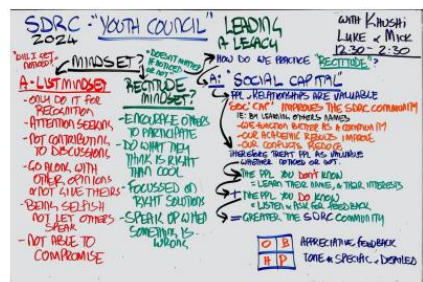 SDRC - "YOUTH COUNCIL"
2024
LEADING
A LEGACY
WITH KHUSHI
LUKE & MICK
12:30 - 2:30
"DID I GET
NOTICED?"
MINDSET?
- DOESN'T MATTER
IF NOTICED
OR NOT
A-LIST MINDSET
- ONLY DO IT FOR
RECOGNITION
- ATTENTION SEEKING
- NOT CONTRIBUTING
TO DISCUSSIONS
- GO ALONG WITH
OTHER OPINIONS
OR NOT GIVE THEIRS
- BEING SELFISH
NOT LET OTHERS
SPEAK
- NOT ABLE TO
COMPROMISE
RECTITUDE
MINDSET?
- ENCOURAGE OTHERS
TO PARTICIPATE
- DO WHAT THEY
THINK IS RIGHT
THAN COOL
- FOCUSSED ON
RIGHT SOLUTIONS
- SPEAK UP WHEN
SOMETHING IS
WRONG
HOW DO WE PRACTICE "RECTITUDE"?
A: "SOCIAL CAPITAL"
PPL - RELATIONSHIPS ARE VALUABLE
"SOC' CAP'" IMPROVES THE SDRC COMMUNITY
IE: BY LEARNING OTHERS NAMES
- WE FUNCTION BETTER AS A COMMUNITY
- OUR ACADEMIC RESULTS IMPROVE
- OUR CONFLICTS REDUCE
THEREFORE TREAT PPL AS VALUABLE
WHETHER NOTICED OR NOT.
THE PPL YOU DON'T KNOW
= LEARN THEIR NAME, & THEIR INTERESTS
+ THE PPL YOU DO KNOW
= LISTEN & ASK FOR FEEDBACK
= GREATER THE SDRC COMMUNITY
O B
H P
APPRECIATIVE FEEDBACK
TONE & SPECIFIC & DETAILED